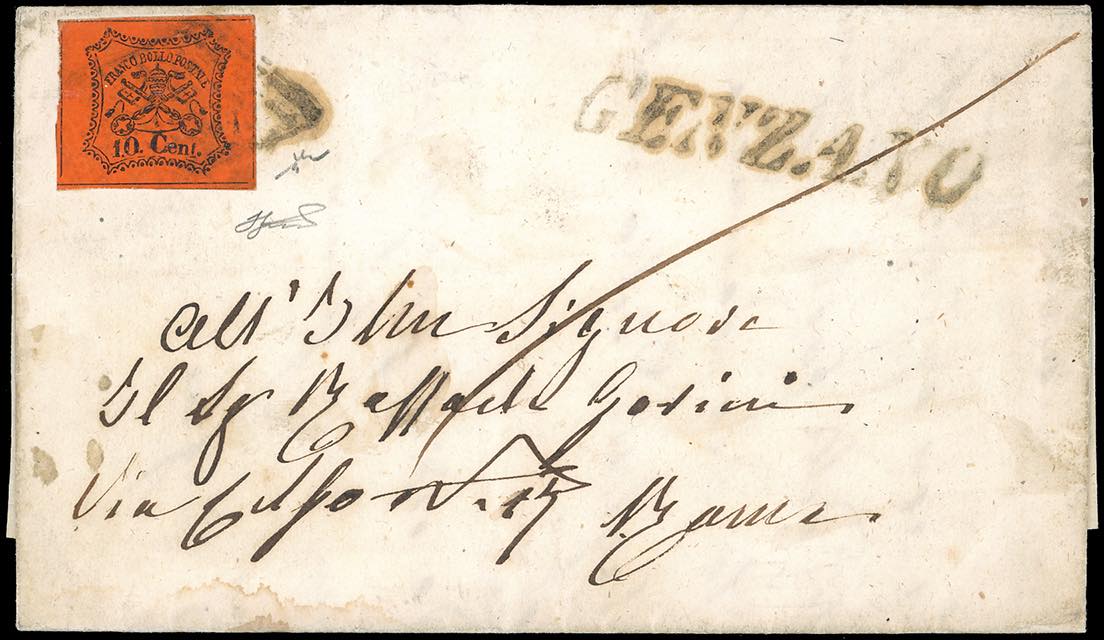 FRANCO BOLLO POSTALE
10. Cent.
GENZANO
All' Illm Signore
Il Sg Raffaele Gorini
Via n. 17 Roma